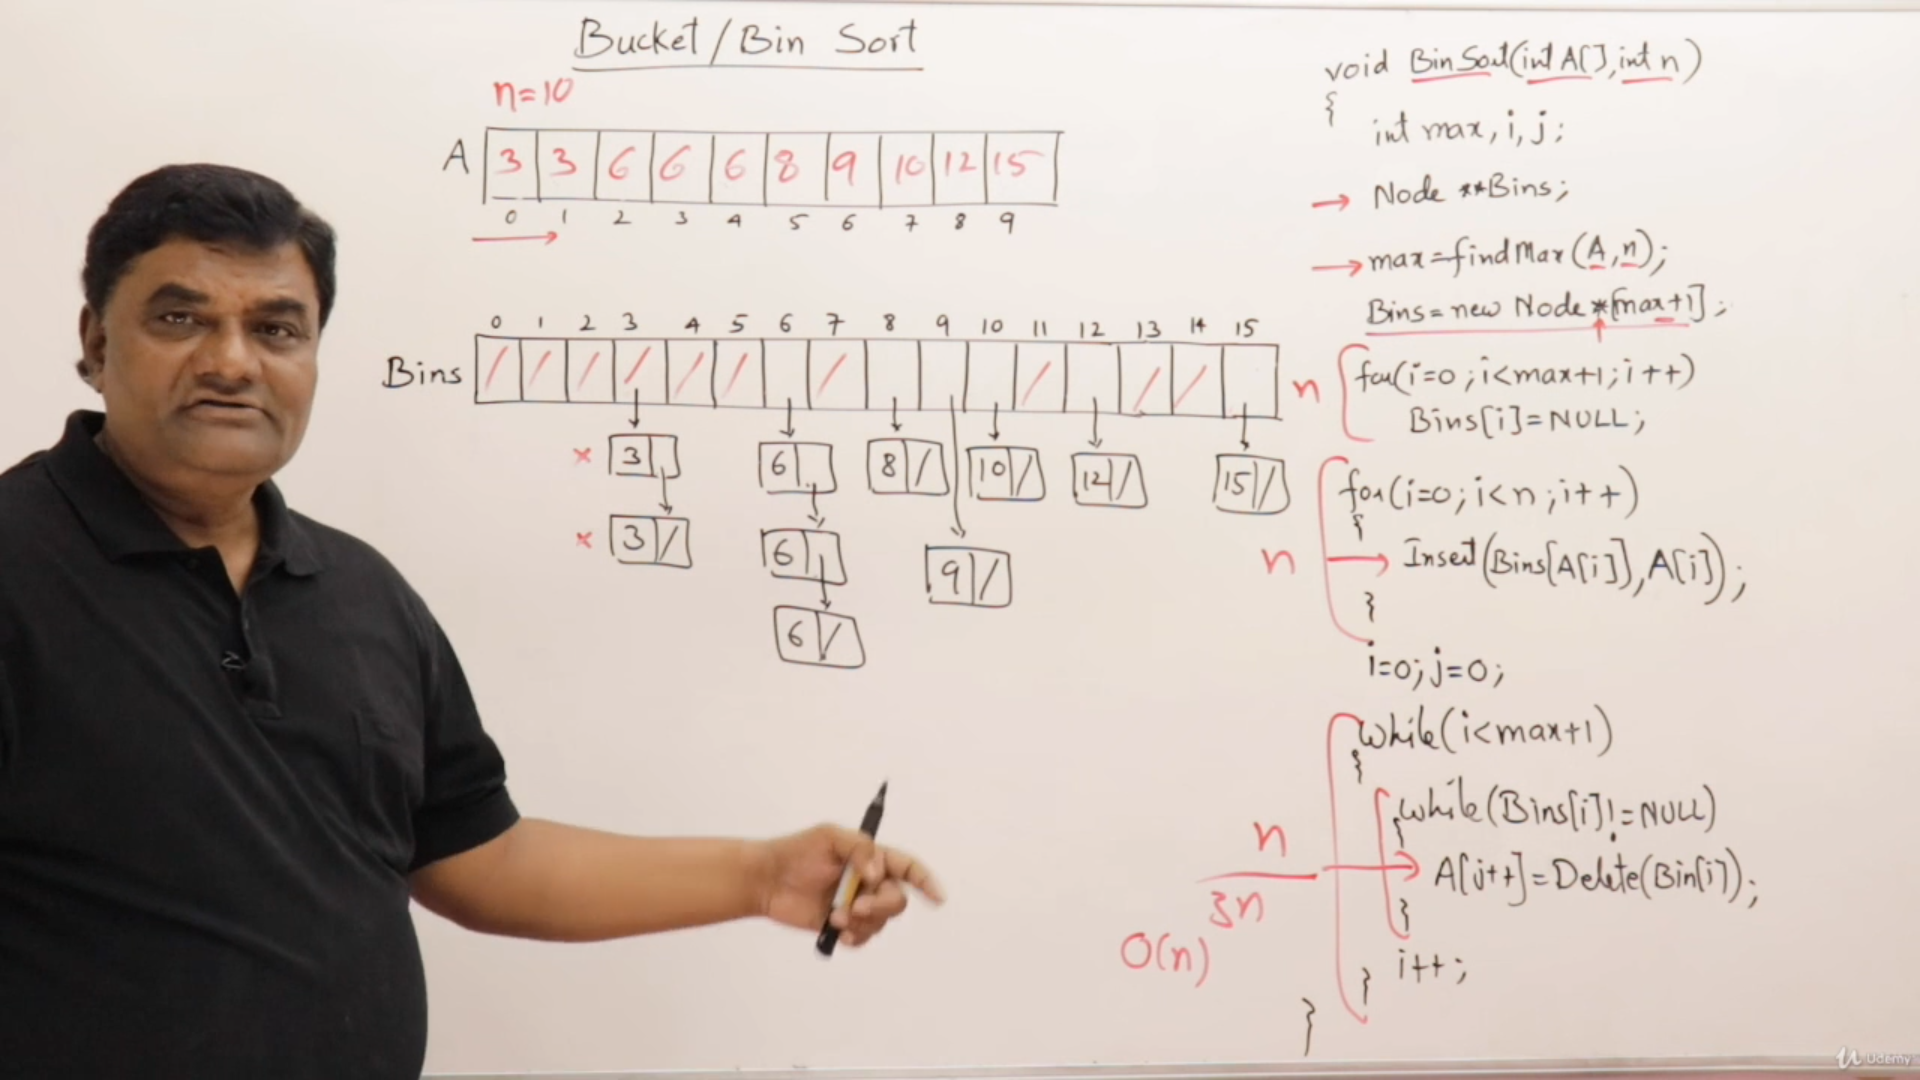 Bucket/Bin Sort
n=10
A 3 3 6 6 6 8 9 10 12 15
0 1 2 3 4 5 6 7 8 9
0 1 2 3 4 5 6 7 8 9 10 11 12 13 14 15
Bins
3 6 8 10 12 15
3 6 9
6
void BinSort(int A[],int n)
{
int max, i, j;
Node **Bins;
max=findMax(A,n);
Bins=new Node *[max+1];
n
for(i=0;i<max+1;i++)
Bins[i]=NULL;
for(i=0;i<n;i++)
{
n
Insert(Bins[A[i]],A[i]);
}
i=0;j=0;
while(i<max+1)
{
while(Bins[i]!=NULL)
{
n
A[j++]=Delete(Bin[i]);
3n
}
O(n)
i++;
}
}
Udemy